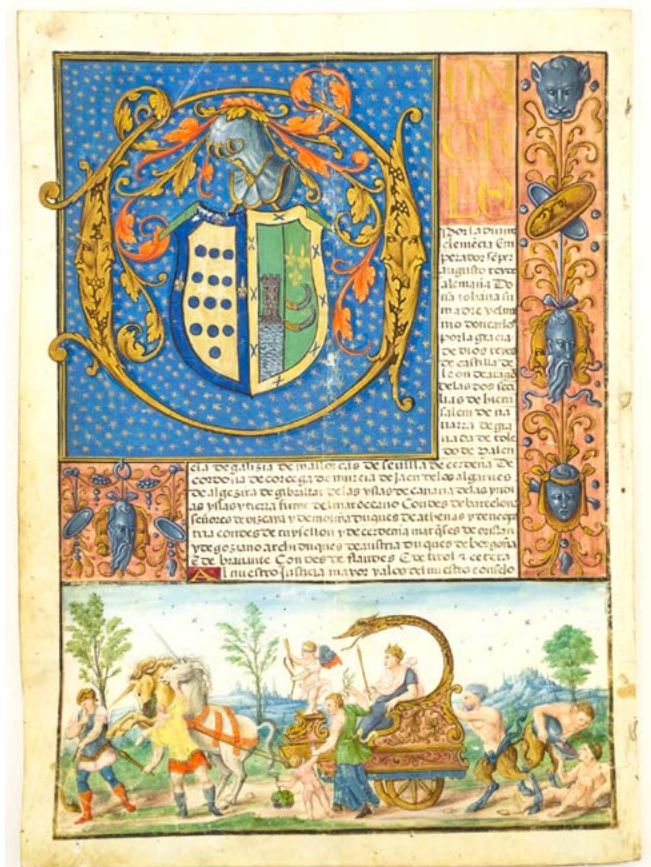 ON
CAR
LOS
Por la divina
clemēcia Em
perador sēper
augusto rey de
alemaña Do
ña iohana su
madre y el mis
mo don carlos
por la gracia
de dios reyes
de castilla de
leon de aragō
de las dos seci
lias de hieru
salem de na
varra de gra
nada de tole
do de valen
cia de galizia de mallorcas de sevilla de cerdeña De
cordova de corcega de murcia de Jaen de los algarves
de algezira de gibraltar de las yslas de canaria de las yndias
yslas y tierra firme del mar oceano Condes de barcelona
señores de vizcaya y de molina duques de athenas y de neopa
tria condes de ruysellon y de cerdania marqueses de oristan
y de goziano archiduques de austria duques de bergoña
E de bravante Condes de flandes E de tirol z cetera
Al nuestro Justicia mayor y a los del nuestro consejo